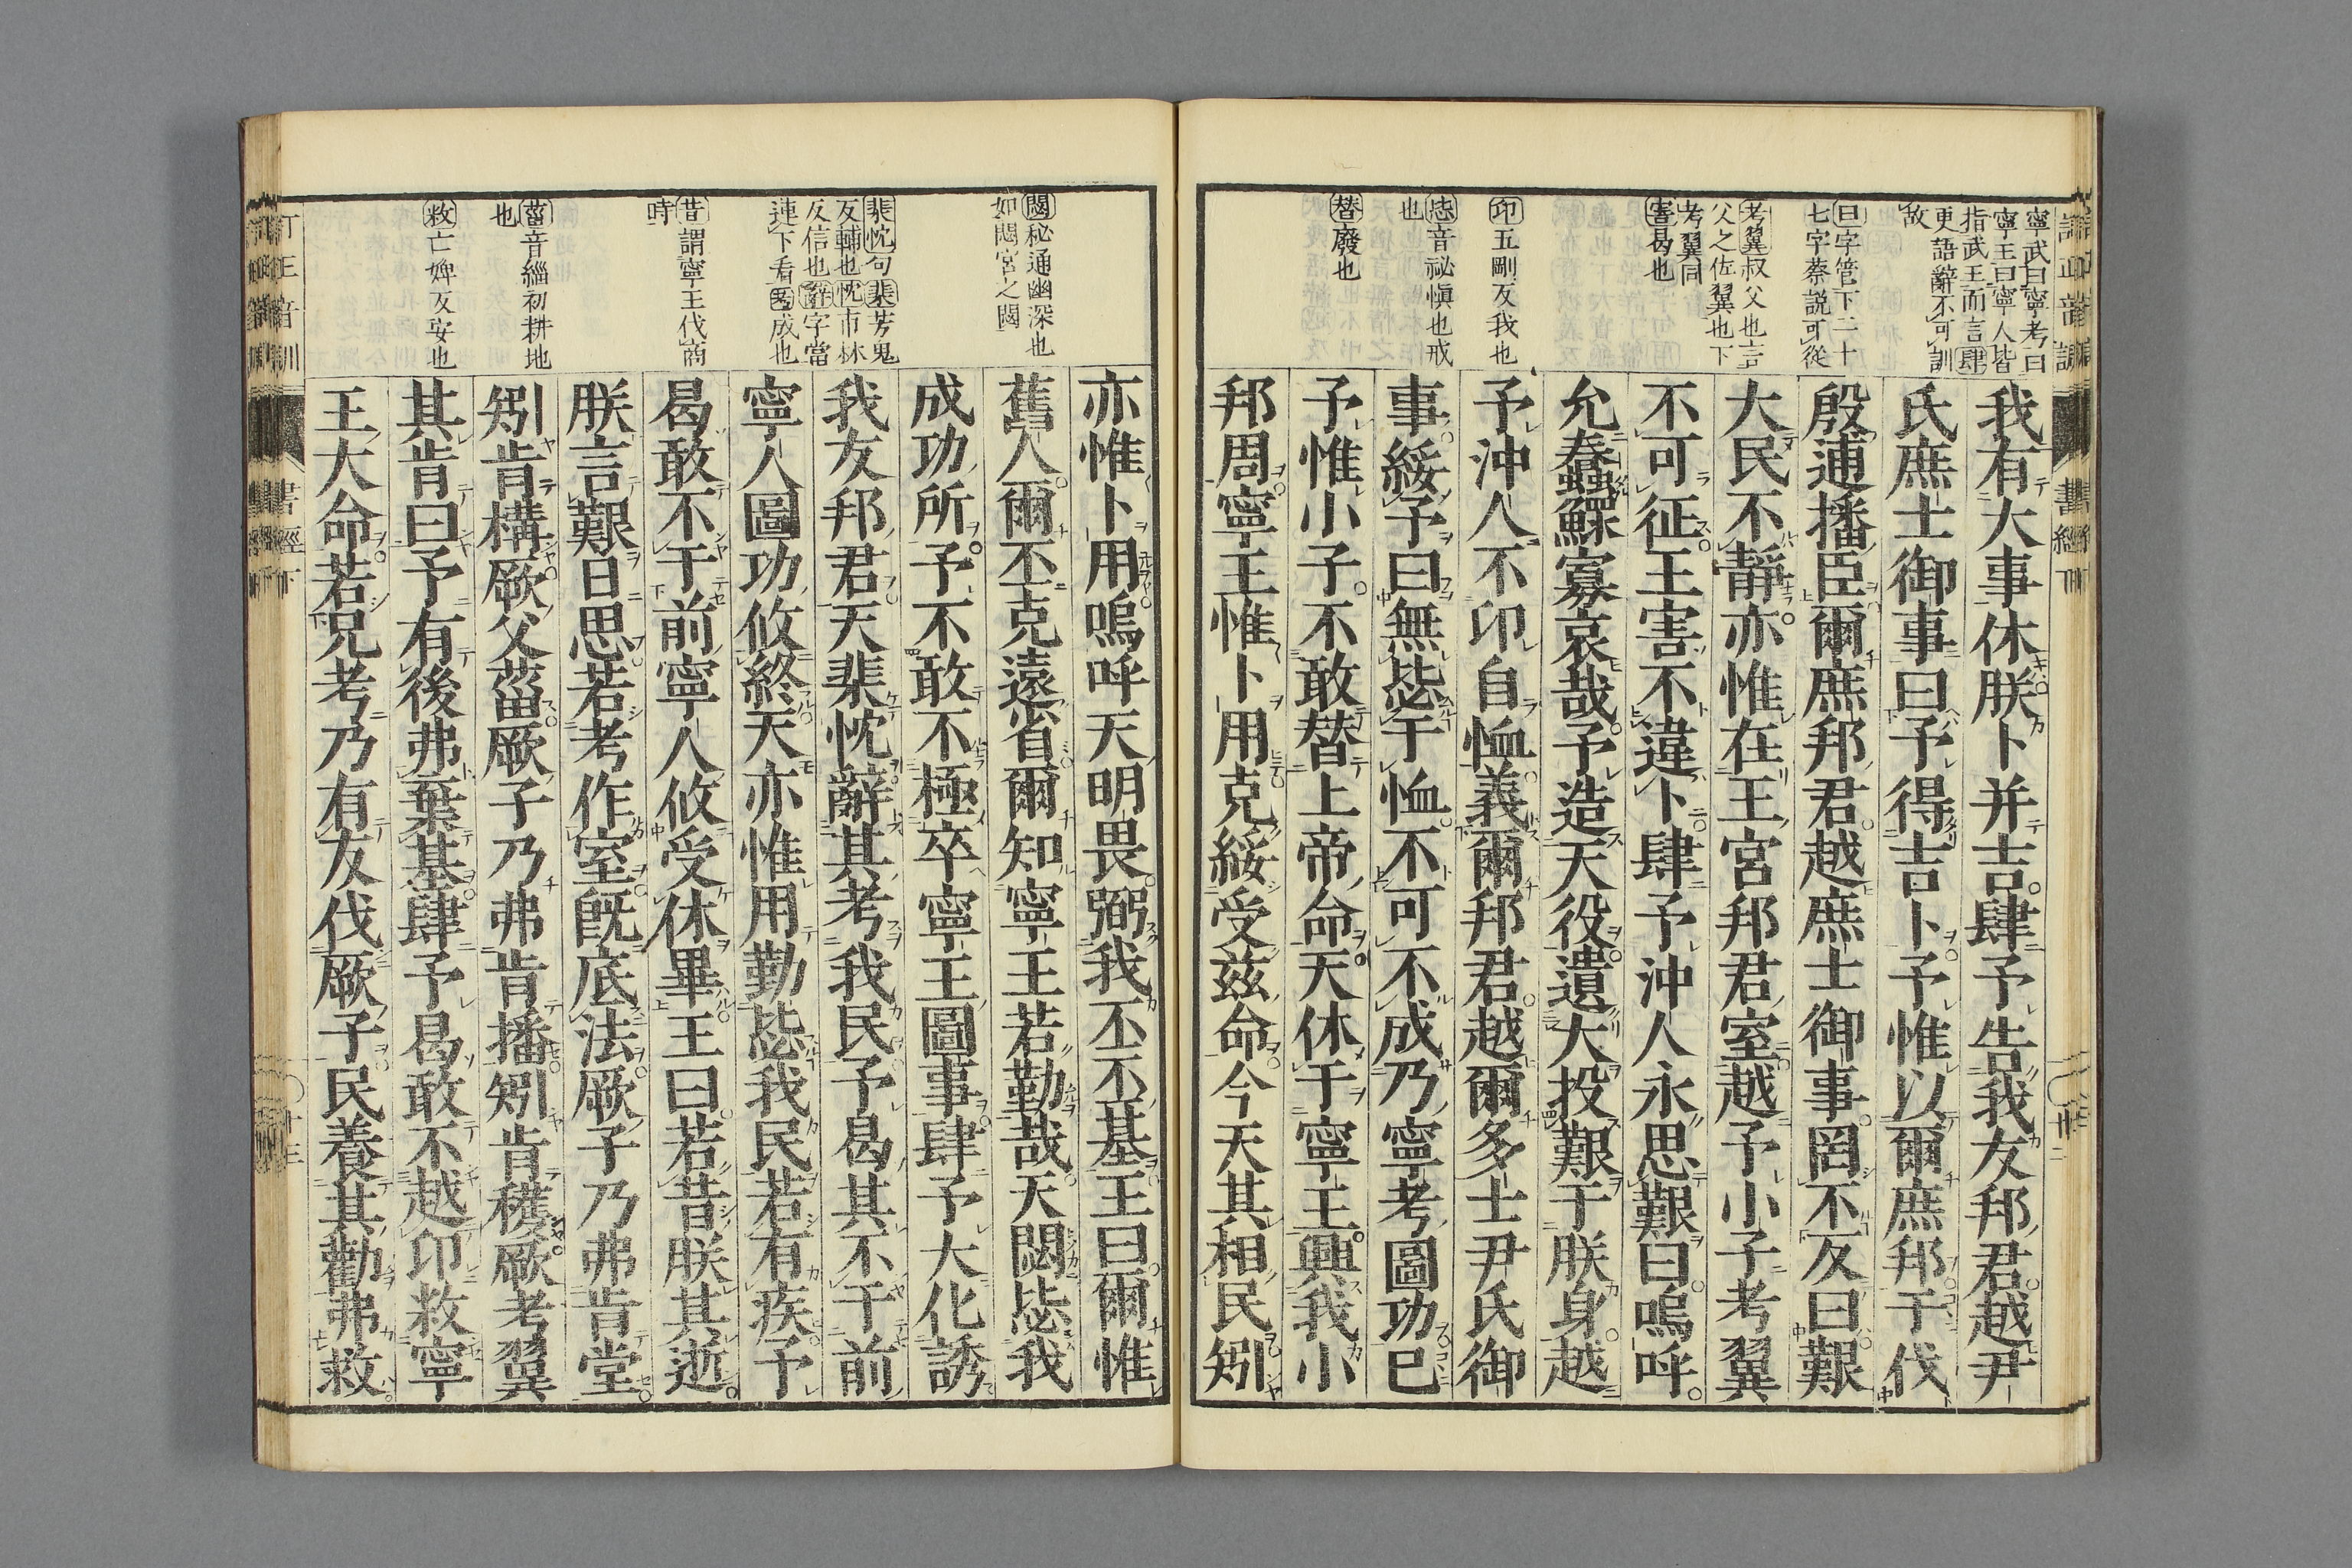 寧武曰寧考曰
寧王曰寧人皆
指武王而言肆
更語辭不可訓
故
曰字管下二十
七字蔡説可從
考翼叔父也言
父之佐翼也下
考翼同
害曷也
卬五剛反我也
毖音祕愼也戒
也
替廢也
我有大事休朕卜并吉肆予告我友邦君越尹
氏庶士御事曰予得吉卜予惟以爾庶邦于伐
殷逋播臣爾庶邦君越庶士御事罔不反曰艱
大民不靜亦惟在王宮邦君室越予小子考翼
不可征王害不違卜肆予沖人永思艱曰嗚呼
允蠢鰥寡哀哉予造天役遺大投艱于朕身越
予沖人不卬自恤義爾邦君越爾多士尹氏御
事綏予曰無毖于恤不可不成乃寧考圖功已
予惟小子不敢替上帝命天休于寧王興我小
邦周寧王惟卜用克綏受茲命今天其相民矧
書經下
閟秘通幽深也
如閟宮之閟
棐忱句棐芳鬼
反輔也忱市林
反信也辭字當
連下看考成也
昔謂寧王伐商
時
菑音緇初耕地
也
敉亡婢反安也
亦惟卜用嗚呼天明畏弼我丕丕基王曰爾惟
舊人爾丕克遠省爾知寧王若勤哉天閟毖我
成功所予不敢不極卒寧王圖事肆予大化誘
我友邦君天棐忱辭其考我民予曷其不于前
寧人圖功攸終天亦惟用勤毖我民若有疾予
曷敢不于前寧人攸受休畢王曰若昔朕其逝
朕言艱日思若考作室既底法厥子乃弗肯堂
矧肯構厥父菑厥子乃弗肯播矧肯穫厥考翼
其肯曰予有後弗棄基肆予曷敢不越卬敉寧
王大命若兄考乃有友伐厥子民養其勸弗救
訂正音訓
書經下